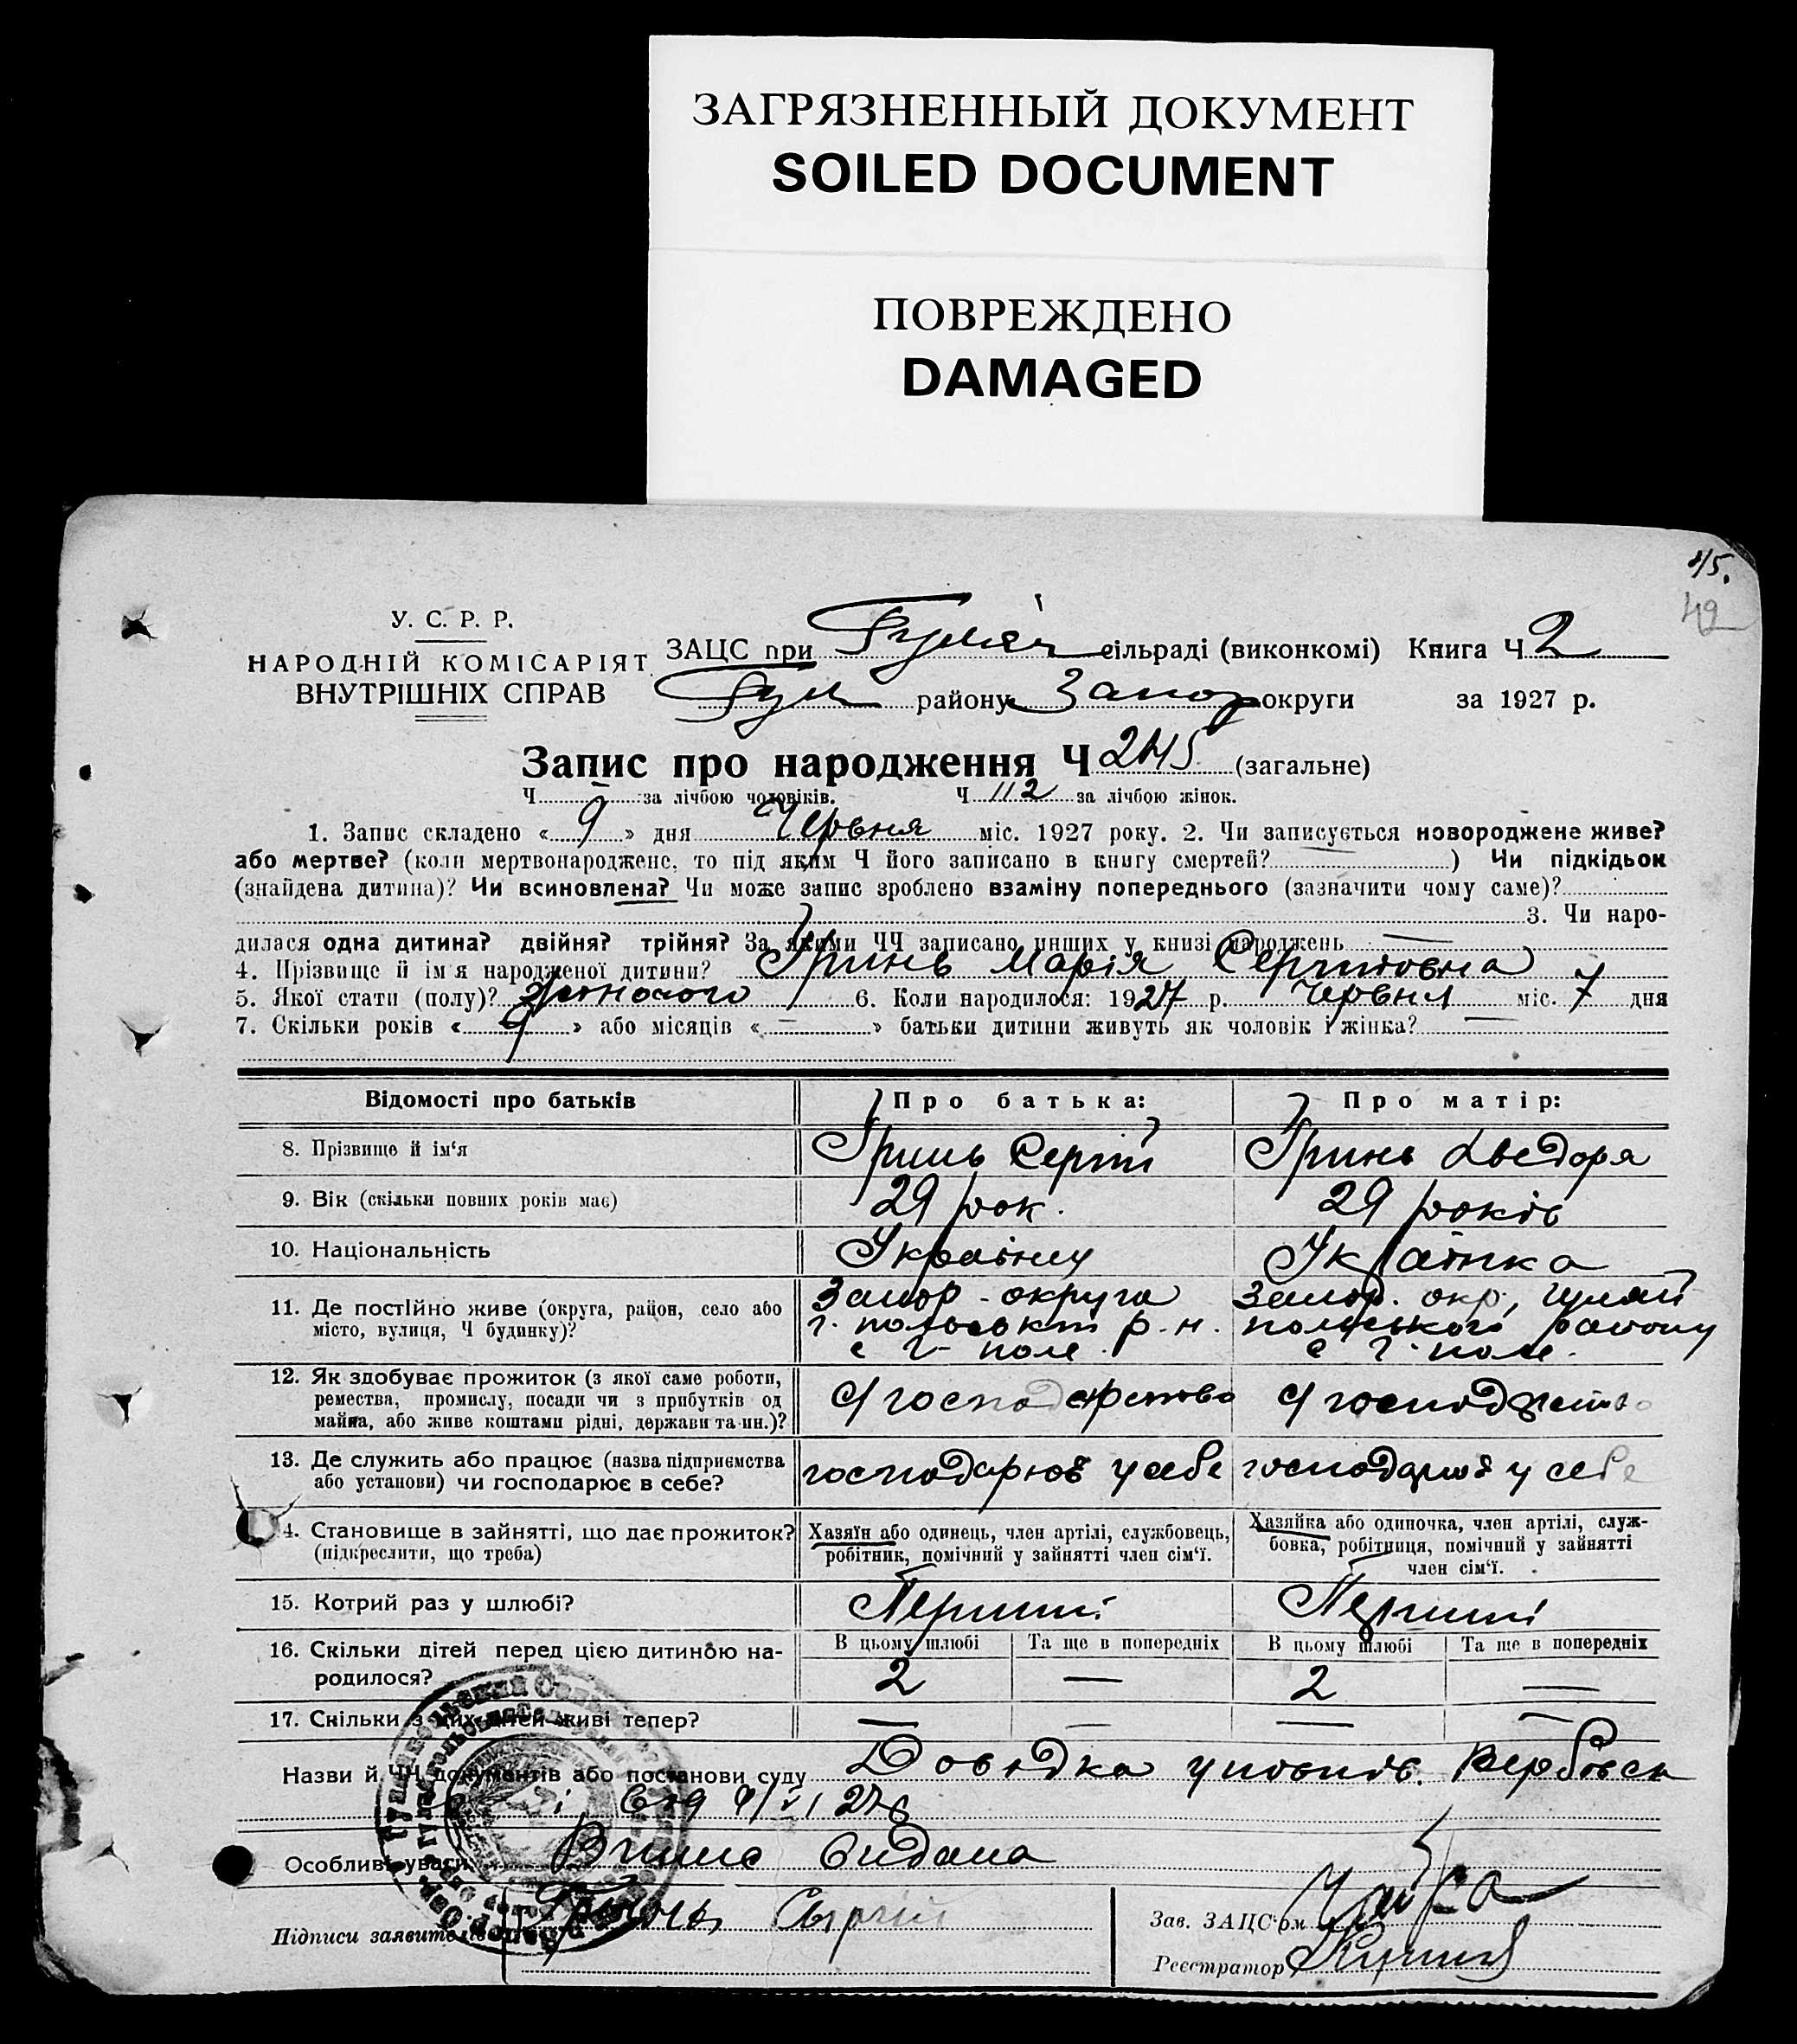 ЗАГРЯЗНЕННЫЙ ДОКУМЕНТ
SOILED DOCUMENT
ПОВРЕЖДЕНО
DAMAGED
45.
42
У. С. Р. Р.
НАРОДНІЙ КОМІСАРІЯТ
ВНУТРІШНІХ СПРАВ
ЗАЦС при Гуляй сільраді (виконкомі) Книга Ч 2
Гул району Запор округи за 1927 р.
Запис про народження Ч 245 (загальне)
Ч – за лічбою чоловіків. Ч 112 за лічбою жінок.
1. Запис складено « 9 » дня Червня міс. 1927 року. 2. Чи записується новороджене живе?
або мертве? (коли мертвонароджене, то під яким Ч його записано в книгу смертей? — ) Чи підкідьок
(знайдена дитина)? Чи всиновлена? Чи може запис зроблено взаміну попереднього (зазначити чому саме)?
3. Чи наро-
дилася одна дитина? двійня? трійня? За якими ЧЧ записано инших у книзі народжень —
4. Прізвище й ім'я народженої дитини? Гринь Марія Сергііовна
5. Якої стати (полу)? Жіночого 6. Коли народилося: 1927 р. Червня міс. 7 дня
7. Скільки років « 9 » або місяців « – » батьки дитини живуть як чоловік і жінка? —
Відомості про батьків Про батька: Про матір:
8. Прізвище й ім'я Гринь Сергій Гринь Хведоря
9. Вік (скільки повних років має) 29 рок. 29 років
10. Національність Українец Українка
11. Де постійно живе (округа, район, село або Запор - округа Запор. окр, Гуляй
місто, вулиця, Ч будинку)? г. польськии р-н. польського району
с Г- поле. с Г. поле.
12. Як здобуває прожиток (з якої саме роботи,
ремества, промислу, посади чи з прибутків од С/господарство С/господарство
майна, або живе коштами рідні, держави та ин.)?
13. Де служить або працює (назва підприємства господарює у себе господарює у себе
або установи) чи господарює в себе?
14. Становище в зайнятті, що дає прожиток? Хазяїн або одинець, член артілі, службовець, Хазяйка або одиночка, член артілі, служ-
(підкреслити, що треба) робітник, помічний у зайнятті член сім'ї. бовка, робітниця, помічний у зайнятті
член сім'ї.
15. Котрий раз у шлюбі? Перший Перший
16. Скільки дітей перед цією дитиною на- В цьому шлюбі Та ще в попередніх В цьому шлюбі Та ще в попередніх
родилося? 2 — 2 —
17. Скільки з цих дітей живі тепер? — — — —
Назви й ЧЧ документів або постанови суду Довідка уповнов. Вербовськ
від 9/VI 27р
Особливі уваги Впись видана
Підписи заявителів Гринь Сергій
Зав. ЗАЦС'ом Чайка
Реєстратор